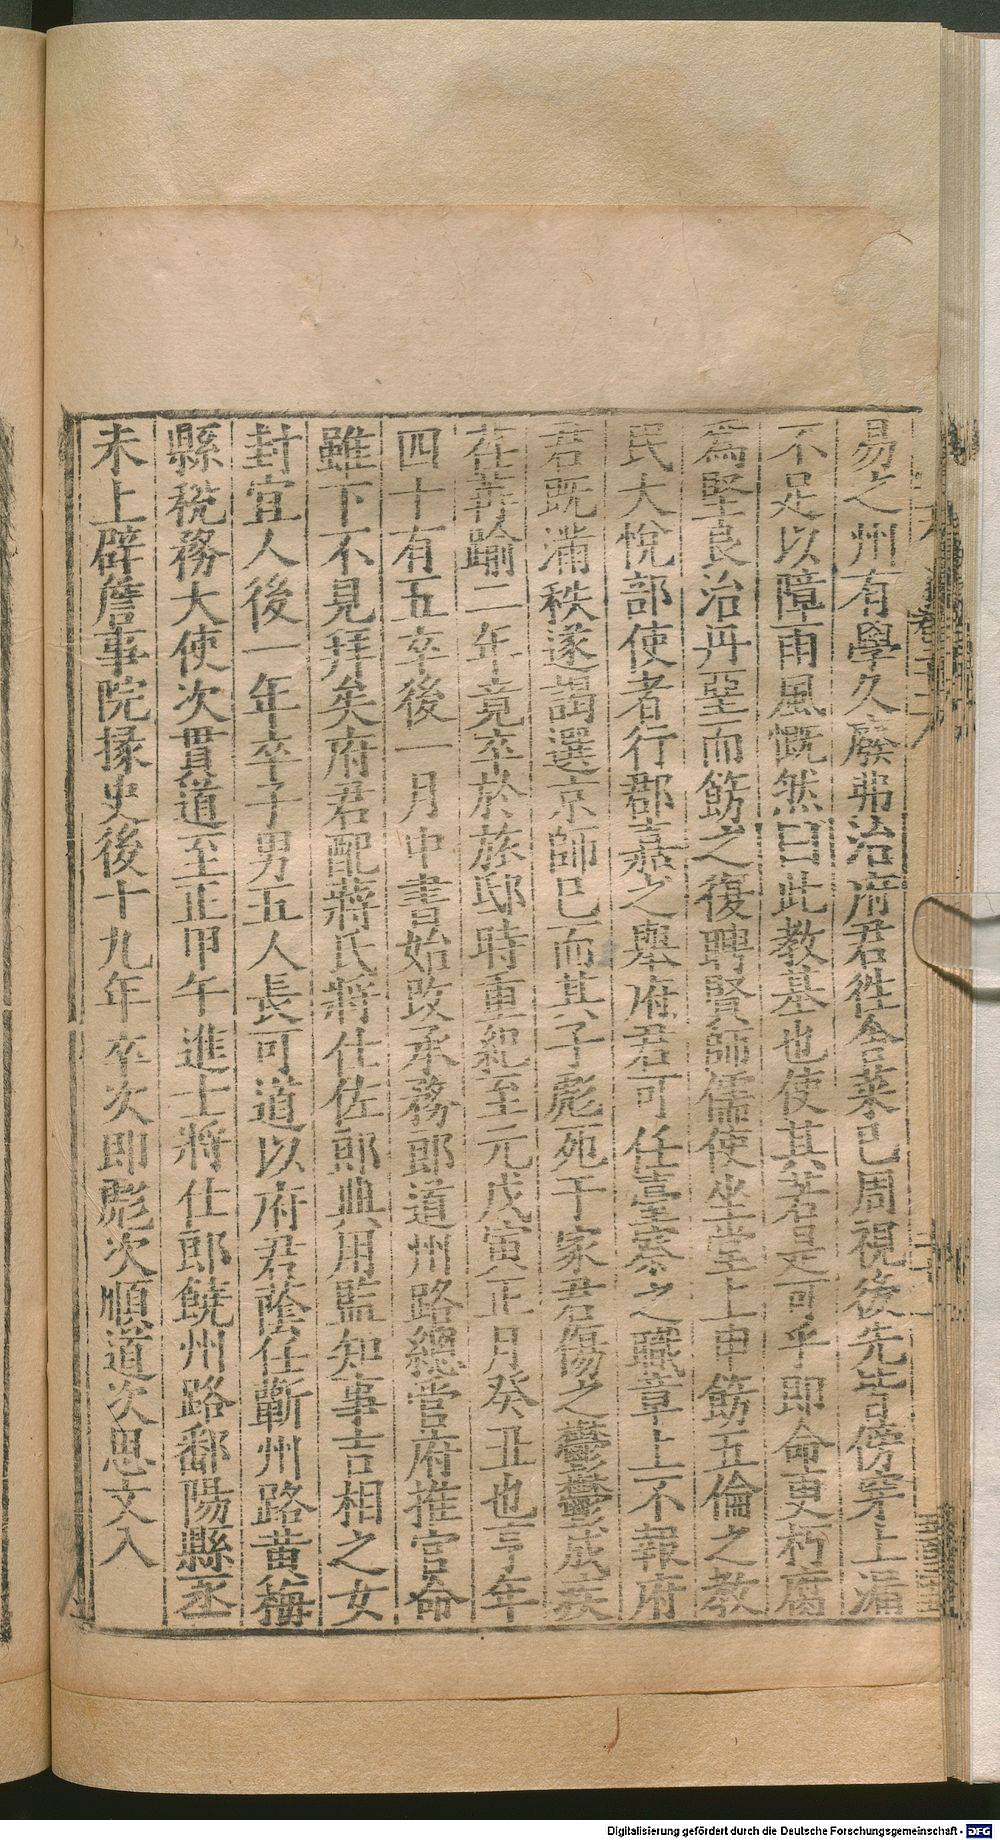 易之州有學久廢弗治府君徃舍菜已周視後先皆傍穿上漏
不足以障雨風慨然曰此教基也使其若是可乎即命更朽腐
為堅良治丹堊而飭之復聘賢師儒使坐堂上申飭五倫之教
民大悅部使者行郡嘉之舉府君可任臺察之職章上不報府
君旣滿秩遂謁選京師已而其子彪死于家君傷之鬱鬱成疾
在莽踰二年竟卒於旅邸時重紀至元戊寅正月癸丑也亨年
四十有五卒後一月中書始改承務郎道州路總管府推官命
雖下不見拜矣府君配蔣氏將仕佐郎典用監知事吉相之女
封宜人後一年卒子男五人長可道以府君蔭仕蘄州路黄梅
縣稅務大使次貫道至正甲午進士將仕郎饒州路鄱陽縣丞
未上辟詹事院掾史後十九年卒次即彪次順道次思文入
Digitalisierung gefördert durch die Deutsche Forschungsgemeinschaft - DFG